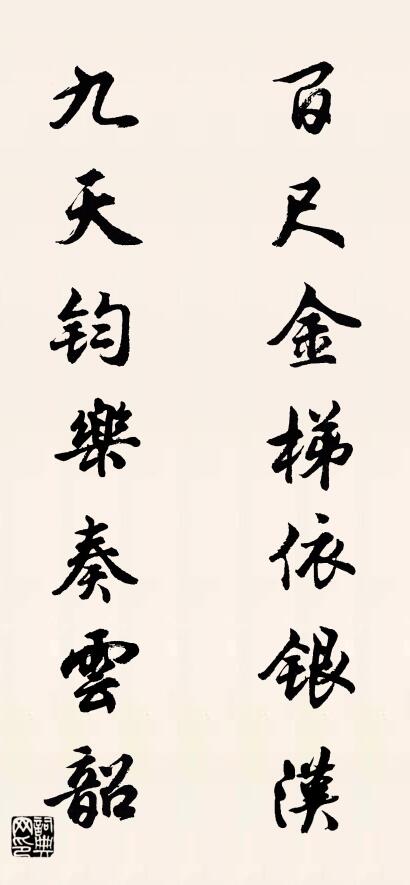 百尺金梯依银漢
九天钧樂奏雲韶
詞典网印